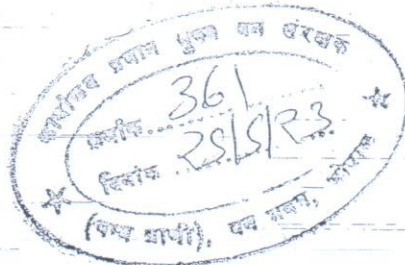 कार्यालय प्रधान मुख्य वन संरक्षक
क्रमांक.....361.....
दिनांक.....25/5/23
(वन्य प्राणी), वन भवन, भोपाल